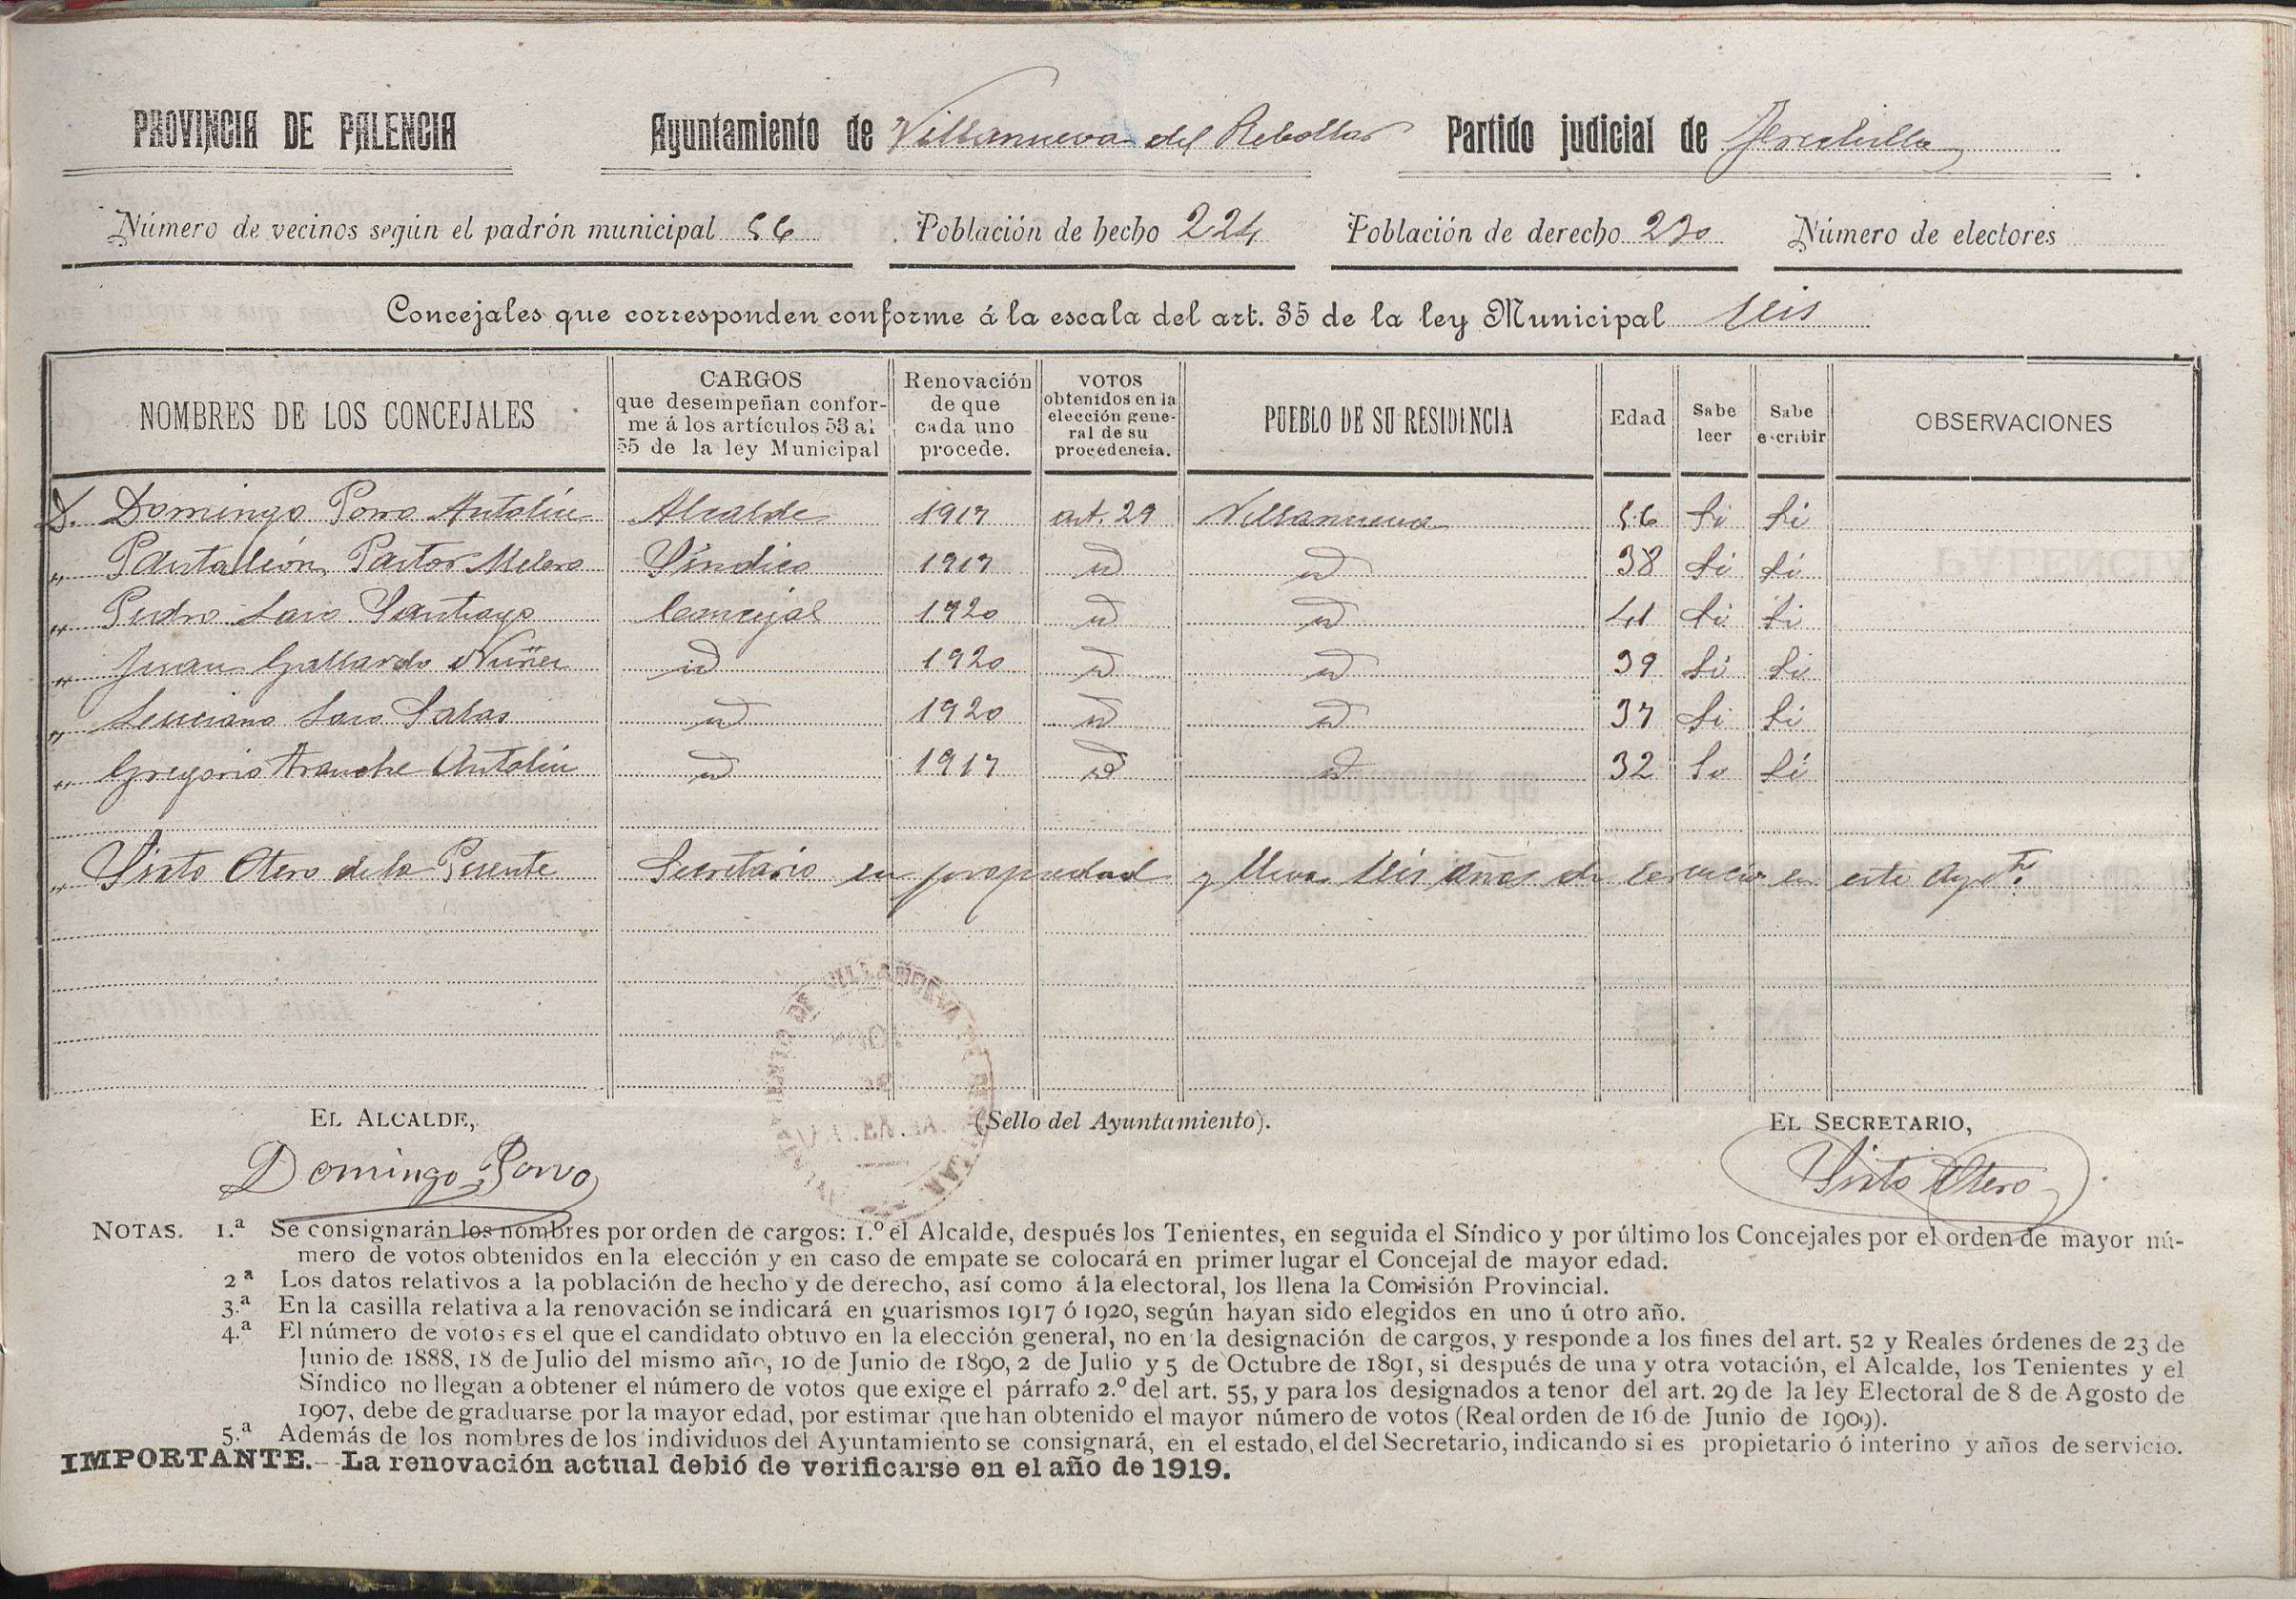 PROVINCIA DE PALENCIA Ayuntamiento de Villanueva del Rebollar Partido judicial de Frechilla
Número de vecinos según el padrón municipal 56 Población de hecho 224 Población de derecho 230 Número de electores
Concejales que corresponden conforme á la escala del art. 35 de la ley Municipal seis
NOMBRES DE LOS CONCEJALES CARGOS que desempeñan confor- me á los artículos 53 al 55 de la ley Municipal Renovación de que cada uno procede. VOTOS obtenidos en la elección gene- ral de su procedencia. PUEBLO DE SU RESIDENCIA Edad Sabe leer Sabe escribir OBSERVACIONES
D. Domingo Porro Antolín Alcalde 1917 art. 29 Villanueva 56 Si Si
" Pantaleón Pastor Melero Síndico 1917 id id 38 Si Si
" Pedro Laso Santiago Concejal 1920 id id 41 Si Si
" Juan Gallardo Nuñez id 1920 id id 39 Si Si
" Luciano Laso Salas id 1920 id id 37 Si Si
" Gregorio Antolín id 1917 id id 32 Si Si
" Sixto Otero de la Puente Secretario en propiedad y lleva seis años de servicio en este Aytº.
EL ALCALDE, (Sello del Ayuntamiento). EL SECRETARIO,
Domingo Porro Sixto Otero
NOTAS. 1.ª Se consignarán los nombres por orden de cargos: 1.º el Alcalde, después los Tenientes, en seguida el Síndico y por último los Concejales por el orden de mayor nú-
mero de votos obtenidos en la elección y en caso de empate se colocará en primer lugar el Concejal de mayor edad.
2ª Los datos relativos a la población de hecho y de derecho, así como á la electoral, los llena la Comisión Provincial.
3.ª En la casilla relativa a la renovación se indicará en guarismos 1917 ó 1920, según hayan sido elegidos en uno ú otro año.
4.ª El número de votos es el que el candidato obtuvo en la elección general, no en la designación de cargos, y responde a los fines del art. 52 y Reales órdenes de 23 de
Junio de 1888, 18 de Julio del mismo año, 10 de Junio de 1890, 2 de Julio y 5 de Octubre de 1891, si después de una y otra votación, el Alcalde, los Tenientes y el
Síndico no llegan a obtener el número de votos que exige el párrafo 2.º del art. 55, y para los designados a tenor del art. 29 de la ley Electoral de 8 de Agosto de
1907, debe de graduarse por la mayor edad, por estimar que han obtenido el mayor número de votos (Real orden de 16 de Junio de 1909).
5.ª Además de los nombres de los individuos del Ayuntamiento se consignará, en el estado, el del Secretario, indicando si es propietario ó interino y años de servicio.
IMPORTANTE.--La renovación actual debió de verificarse en el año de 1919.